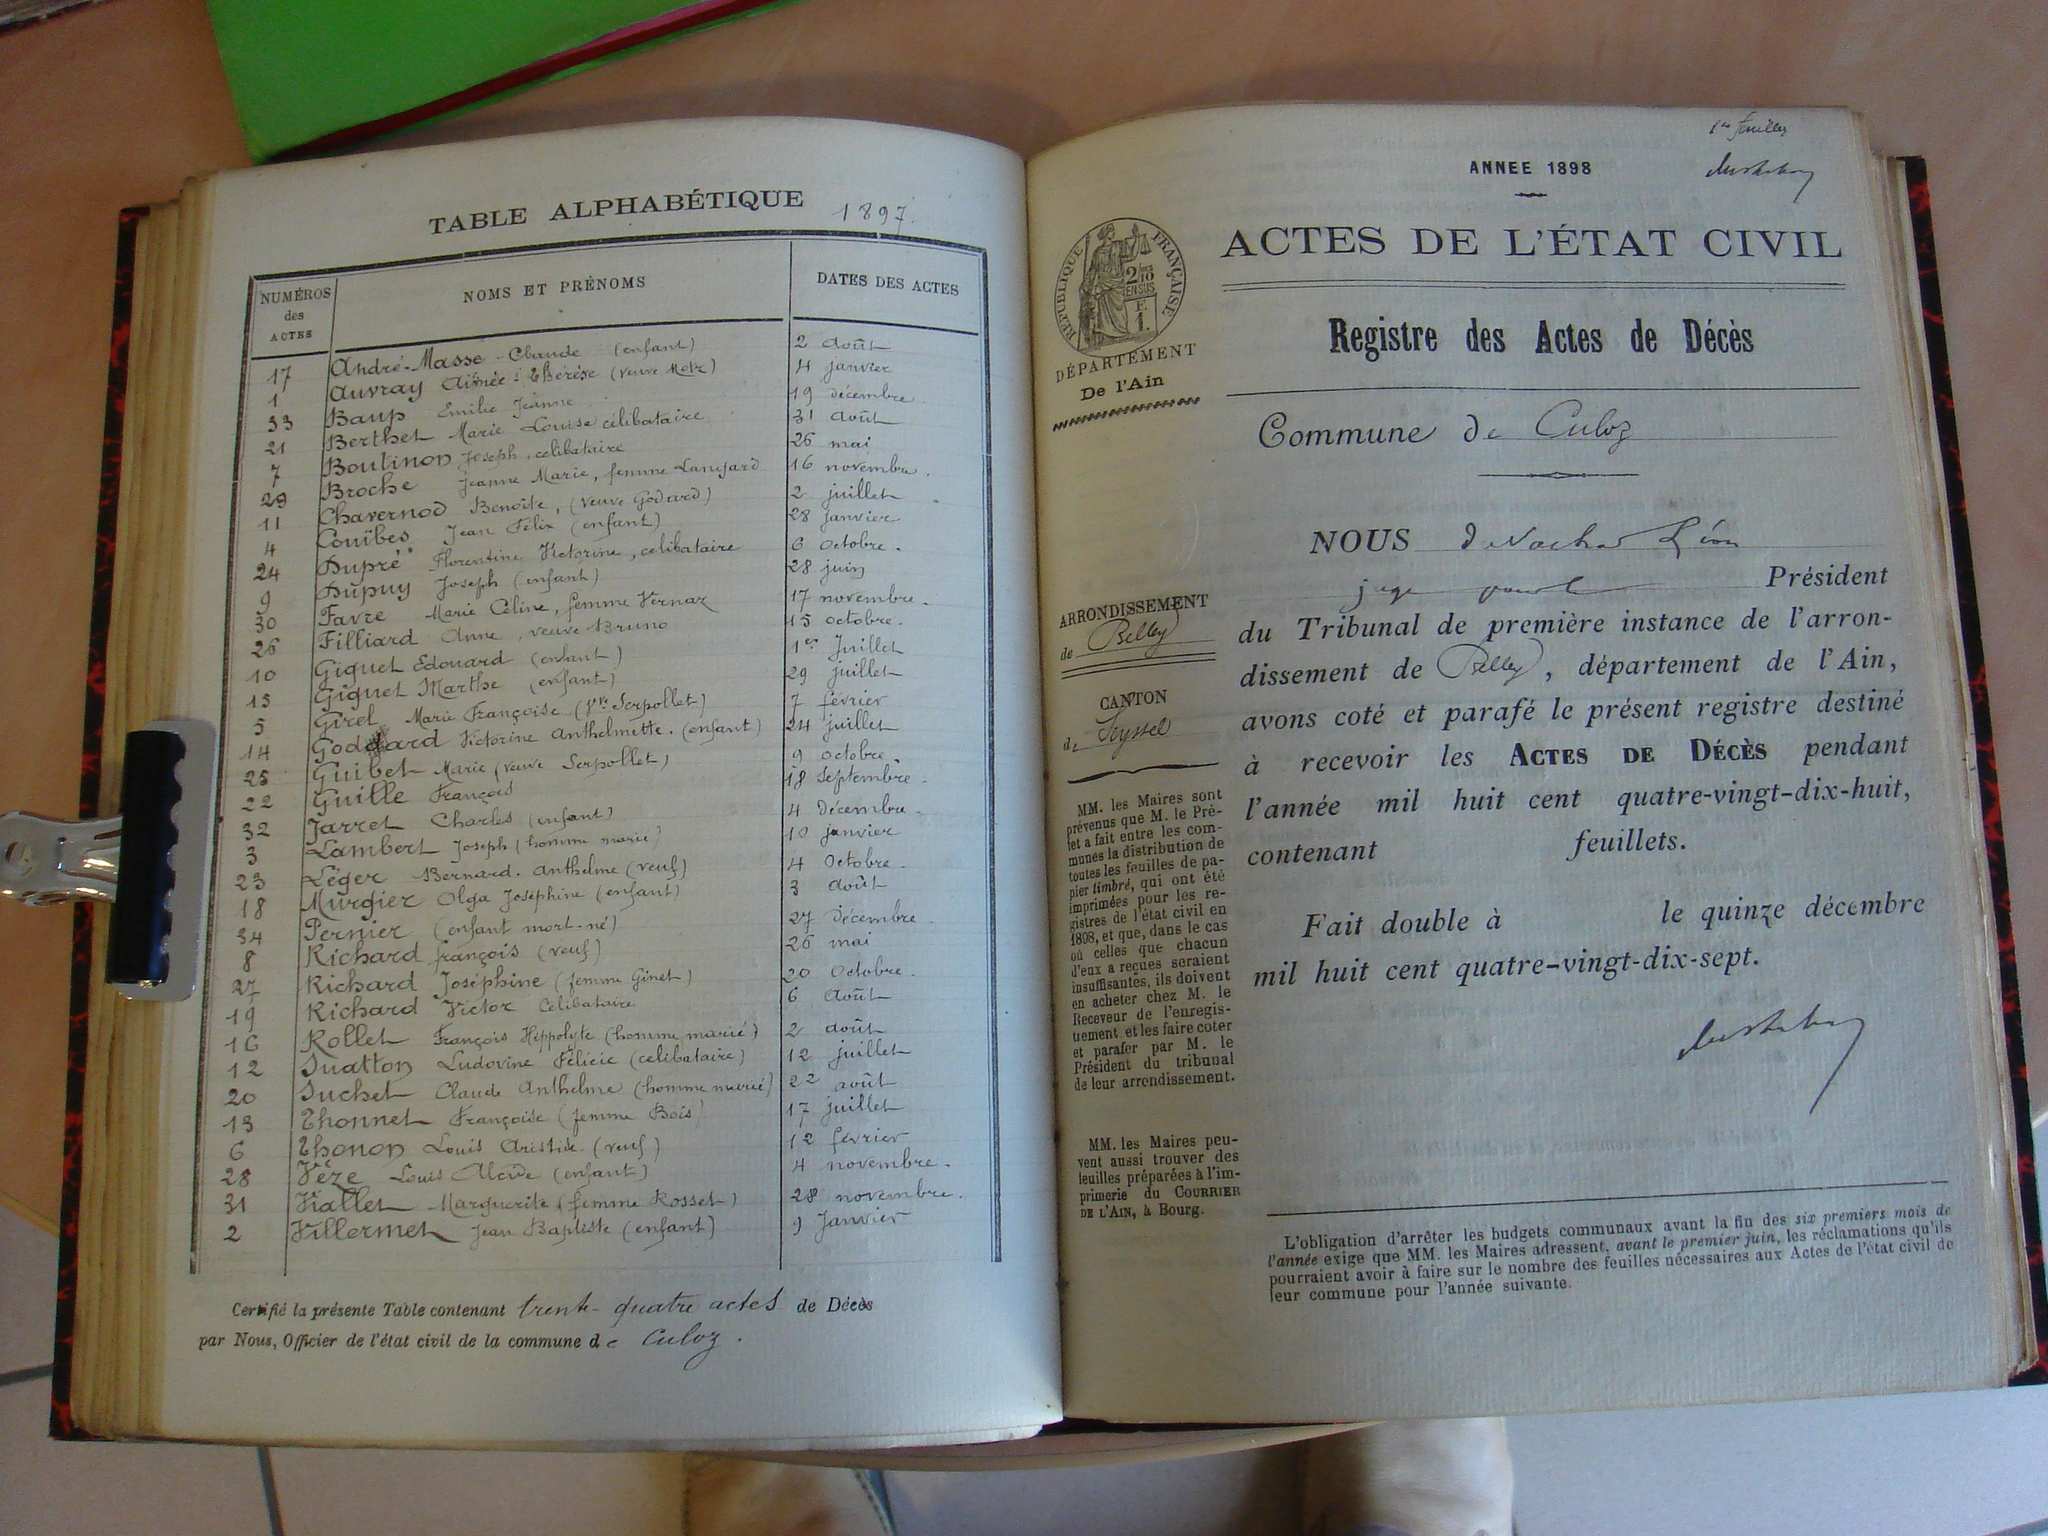 TABLE ALPHABÉTIQUE 1897.
NUMÉROS des ACTES NOMS ET PRÉNOMS DATES DES ACTES
17 André-Masse Claude (enfant) 2 août
1 Auvray Aimée-Thérèse (veuve Metz) 4 janvier
33 Baup Emilie Jeanne 19 décembre
21 Berthet Marie Louise célibataire 31 août
7 Boutinon Joseph, célibataire 26 mai
29 Broche Jeanne Marie, femme Lançard 16 novembre.
11 Chavernod Benoîte, (veuve Godard) 2 juillet
4 Couibes Jean Félix (enfant) 28 janvier
24 Dupré Florentine Victorine, célibataire 6 octobre.
9 Dupuy Joseph (enfant) 28 juin
30 Favre Marie Céline, femme Vernaz 17 novembre.
26 Filliard Anne, veuve Bruno 15 octobre.
10 Giguet Edouard (enfant) 1er Juillet
15 Giguet Marthe (enfant) 29 juillet
5 Girel Marie Françoise (Vve Serpollet) 7 février
14 Goddard Victorine Anthelmette. (enfant) 24 juillet
25 Guibet Marie (veuve Serpollet) 9 octobre.
22 Guille François 18 Septembre.
32 Jarret Charles (enfant) 4 Décembre
3 Lambert Joseph (homme marié) 10 janvier
23 Léger Bernard. Anthelme (veuf) 4 Octobre.
18 Murgier Olga Joséphine (enfant) 3 août
34 Pernier (enfant mort-né) 27 décembre.
8 Richard françois (veuf) 26 mai
27 Richard Joséphine (femme Ginet) 20 Octobre.
19 Richard Victor Célibataire 6 Août
16 Rollet François Hippolyte (homme marié) 2 août
12 Suatton Ludovine Félicie (célibataire) 12 juillet
20 Suchet Claude Anthelme (homme marié) 22 août
13 Thonnet Françoise (femme Bois) 17 juillet
6 Thonon Louis Aristide. (veuf) 12 février
28 Vèze Louis Alcide (enfant) 4 novembre.
31 Viallet Marguerite (femme Rosset) 28 novembre.
2 Villermet Jean Baptiste (enfant) 9 Janvier
Certifié la présente Table contenant trente-quatre actes de Décès
par Nous, Officier de l'état civil de la commune de Culoz.
ANNEE 1898
ACTES DE L'ÉTAT CIVIL
RÉPUBLIQUE FRANÇAISE
DÉPARTEMENT
De l'Ain
Registre des Actes de Décès
Commune de Culoz
NOUS Léon
juge pour le Président
du Tribunal de première instance de l'arron-
dissement de Belley, département de l'Ain,
avons coté et parafé le présent registre destiné
à recevoir les ACTES DE DÉCÈS pendant
l'année mil huit cent quatre-vingt-dix-huit,
contenant feuillets.
Fait double à le quinze décembre
mil huit cent quatre-vingt-dix-sept.
ARRONDISSEMENT
de Belley
CANTON
de Seyssel
MM. les Maires sont
prévenus que M. le Pré-
fet a fait entre les com-
munes la distribution de
toutes les feuilles de pa-
pier timbré, qui ont été
imprimées pour les re-
gistres de l'état civil en
1898, et que, dans le cas
où celles que chacun
d'eux a reçues seraient
insuffisantes, ils doivent
en acheter chez M. le
Receveur de l'enregis-
trement et les faire coter
et parafer par M. le
Président du tribunal
de leur arrondissement.
MM. les Maires peu-
vent aussi trouver des
feuilles préparées à l'im-
primerie du COURRIER
DE L'AIN, à Bourg.
L'obligation d'arrêter les budgets communaux avant la fin des six premiers mois de
l'année exige que MM. les Maires adressent, avant le premier juin, les réclamations qu'ils
pourraient avoir à faire sur le nombre des feuilles nécessaires aux Actes de l'état civil de
leur commune pour l'année suivante.